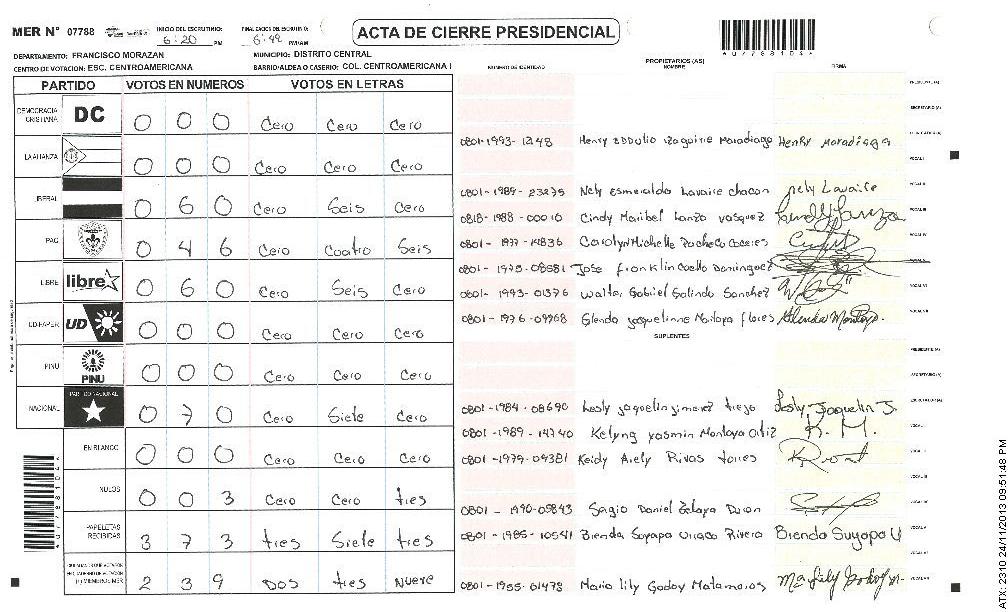 MER N° 07788
INICIO DEL ESCRUTINIO: 6:20 PM
FINALIZACION DEL ESCRUTINIO: 6:49 PM/AM
ACTA DE CIERRE PRESIDENCIAL
*07788104*
DEPARTAMENTO: FRANCISCO MORAZAN
MUNICIPIO: DISTRITO CENTRAL
CENTRO DE VOTACION: ESC. CENTROAMERICANA
BARRIO/ALDEA O CASERIO: COL. CENTROAMERICANA I
PARTIDO VOTOS EN NUMEROS VOTOS EN LETRAS
DEMOCRACIA CRISTIANA DC 0 0 0 Cero Cero Cero
LA ALIANZA 0 0 0 Cero Cero Cero
LIBERAL 0 6 0 Cero Seis Cero
PAC 0 4 6 Cero Cuatro Seis
LIBRE libre 0 6 0 Cero Seis Cero
UD-FAPER UD 0 0 0 Cero Cero Cero
PINU PINU 0 0 0 Cero Cero Cero
NACIONAL PARTIDO NACIONAL 0 7 0 Cero Siete Cero
EN BLANCO 0 0 0 Cero Cero Cero
NULOS 0 0 3 Cero Cero tres
PAPELETAS RECIBIDAS 3 7 3 tres Siete tres
2 3 9 Dos tres Nueve
PROPIETARIOS (AS)
NUMERO DE IDENTIDAD NOMBRE FIRMA
0801-1993-1248 Henry
0801-1989-23275 Nely Esmeralda Lavaire chacon Nely Lavaire
0818-1988-00010 Cindy Maribel Lanza vasquez
0801-1977-14836 Carolyn Michelle Pacheco Caceres
0801-1975-08581 Jose franklin Coello Dominguez
0801-1993-01376 Walter Gabriel Galindo Sanchez
0801-1976-09968 Glenda Jaqueline Montoya flores Glenda Montoya
SUPLENTES
0801-1984-08690 Lesly Jaquelin Jimenez trejo Lesly Jaquelin J.
0801-1989-14740 Kelyng yasmin Montoya Ortiz K. M.
0801-1979-04381 Keidy Arely Rivas torres
0801-1990-05843 Sagio Daniel Zelaya
0801-1985-10541 Brenda Suyapa Rivera Brenda Suyapa U
0801-1955-01473 Maria lily Godoy Matamoros
ATX: 2310 24/11/2013 09:51:48 PM